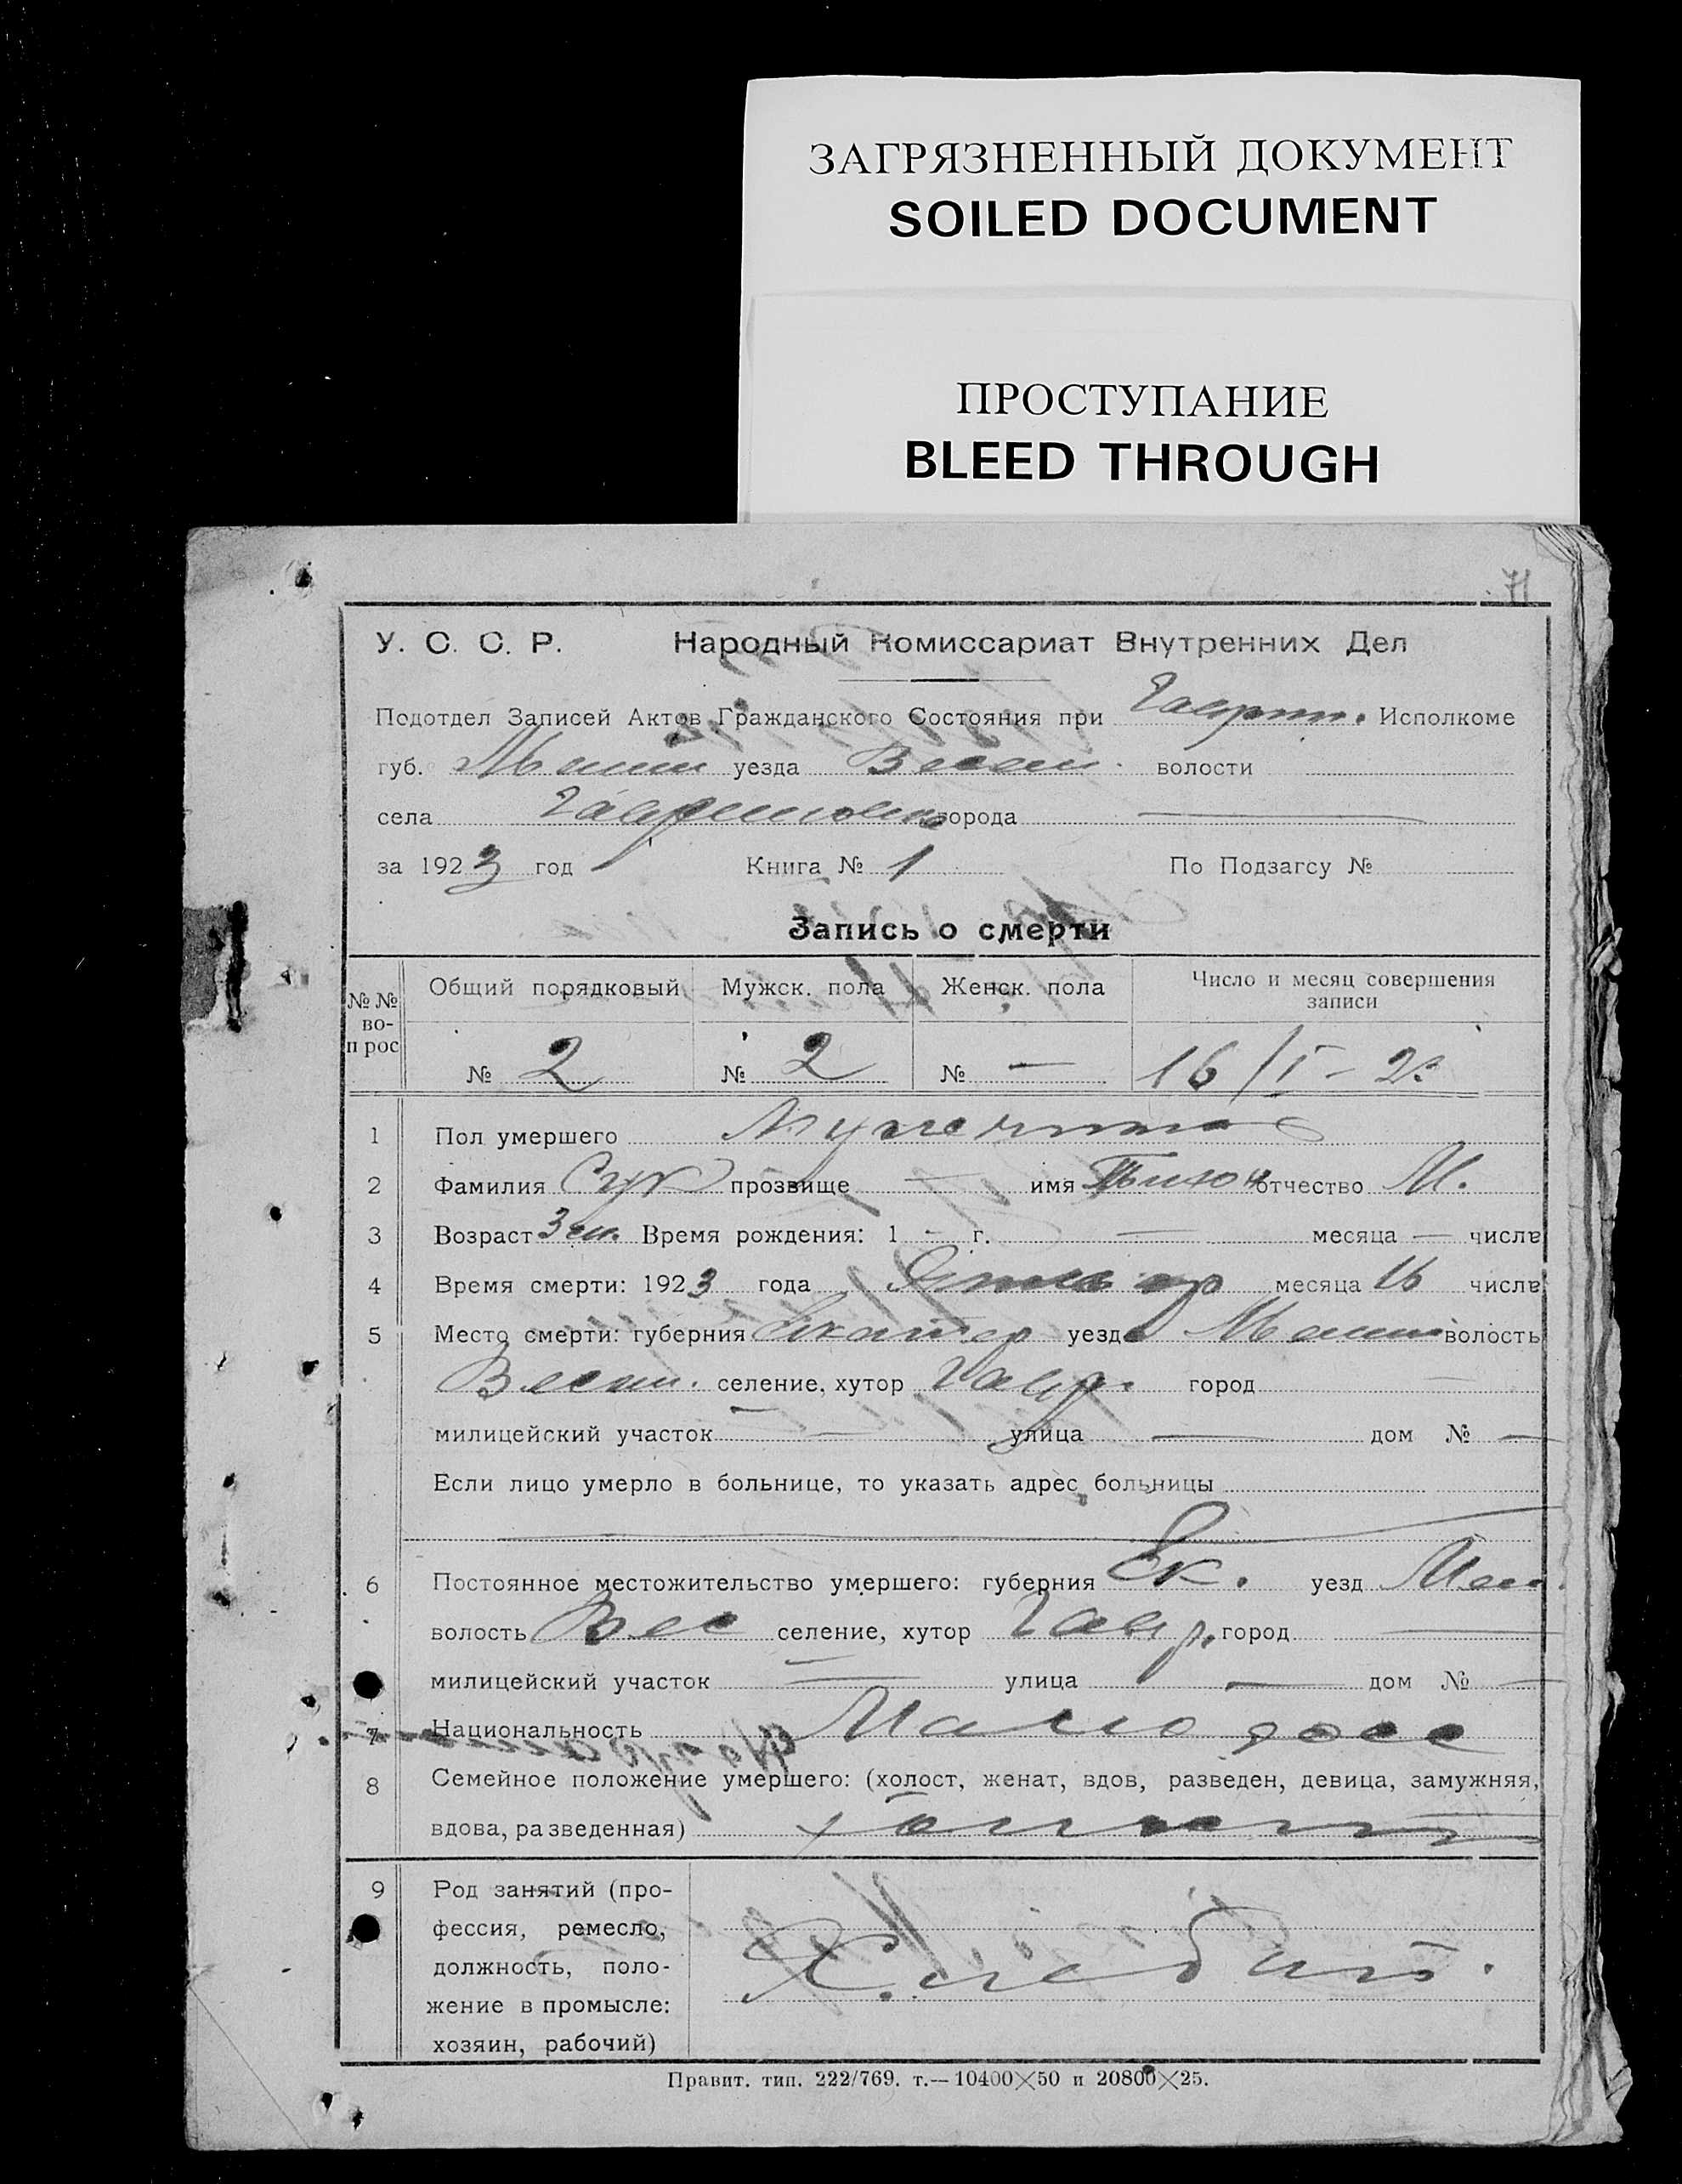 ЗАГРЯЗНЕННЫЙ ДОКУМЕНТ
SOILED DOCUMENT
ПРОСТУПАНИЕ
BLEED THROUGH
71
У. С. С. Р. Народный Комиссариат Внутренних Дел
Подотдел Записей Актов Гражданского Состояния при Исполкоме
губ. уезда Весел. волости
села города —
за 1923 год Книга № 1 По Подзагсу №
Запись о смерти
№ № во-прос Общий порядковый Мужск. пола Женск. пола Число и месяц совершения записи
№ 2 № 2 № — 16/I – 23
1 Пол умершего Мужчина
2 Фамилия Сук прозвище — имя Тихон отчество М.
3 Возраст Время рождения: 1 – г. — месяца — числа
4 Время смерти: 1923 года Январ месяца 16 числа
5 Место смерти: губерния Екатер уезд волость
Весел. селение, хутор Гавр. город —
милицейский участок — улица — дом № —
Если лицо умерло в больнице, то указать адрес больницы
6 Постоянное местожительство умершего: губерния Ек. уезд
волость Вес селение, хутор Гавр. город —
милицейский участок — улица — дом № —
7 Национальность Малоросс
8 Семейное положение умершего: (холост, женат, вдов, разведен, девица, замужняя,
вдова, разведенная) холост
9 Род занятий (про-
фессия, ремесло,
должность, поло-
жение в промысле:
хозяин, рабочий)
Правит. тип. 222/769. т.—10400×50 и 20800×25.